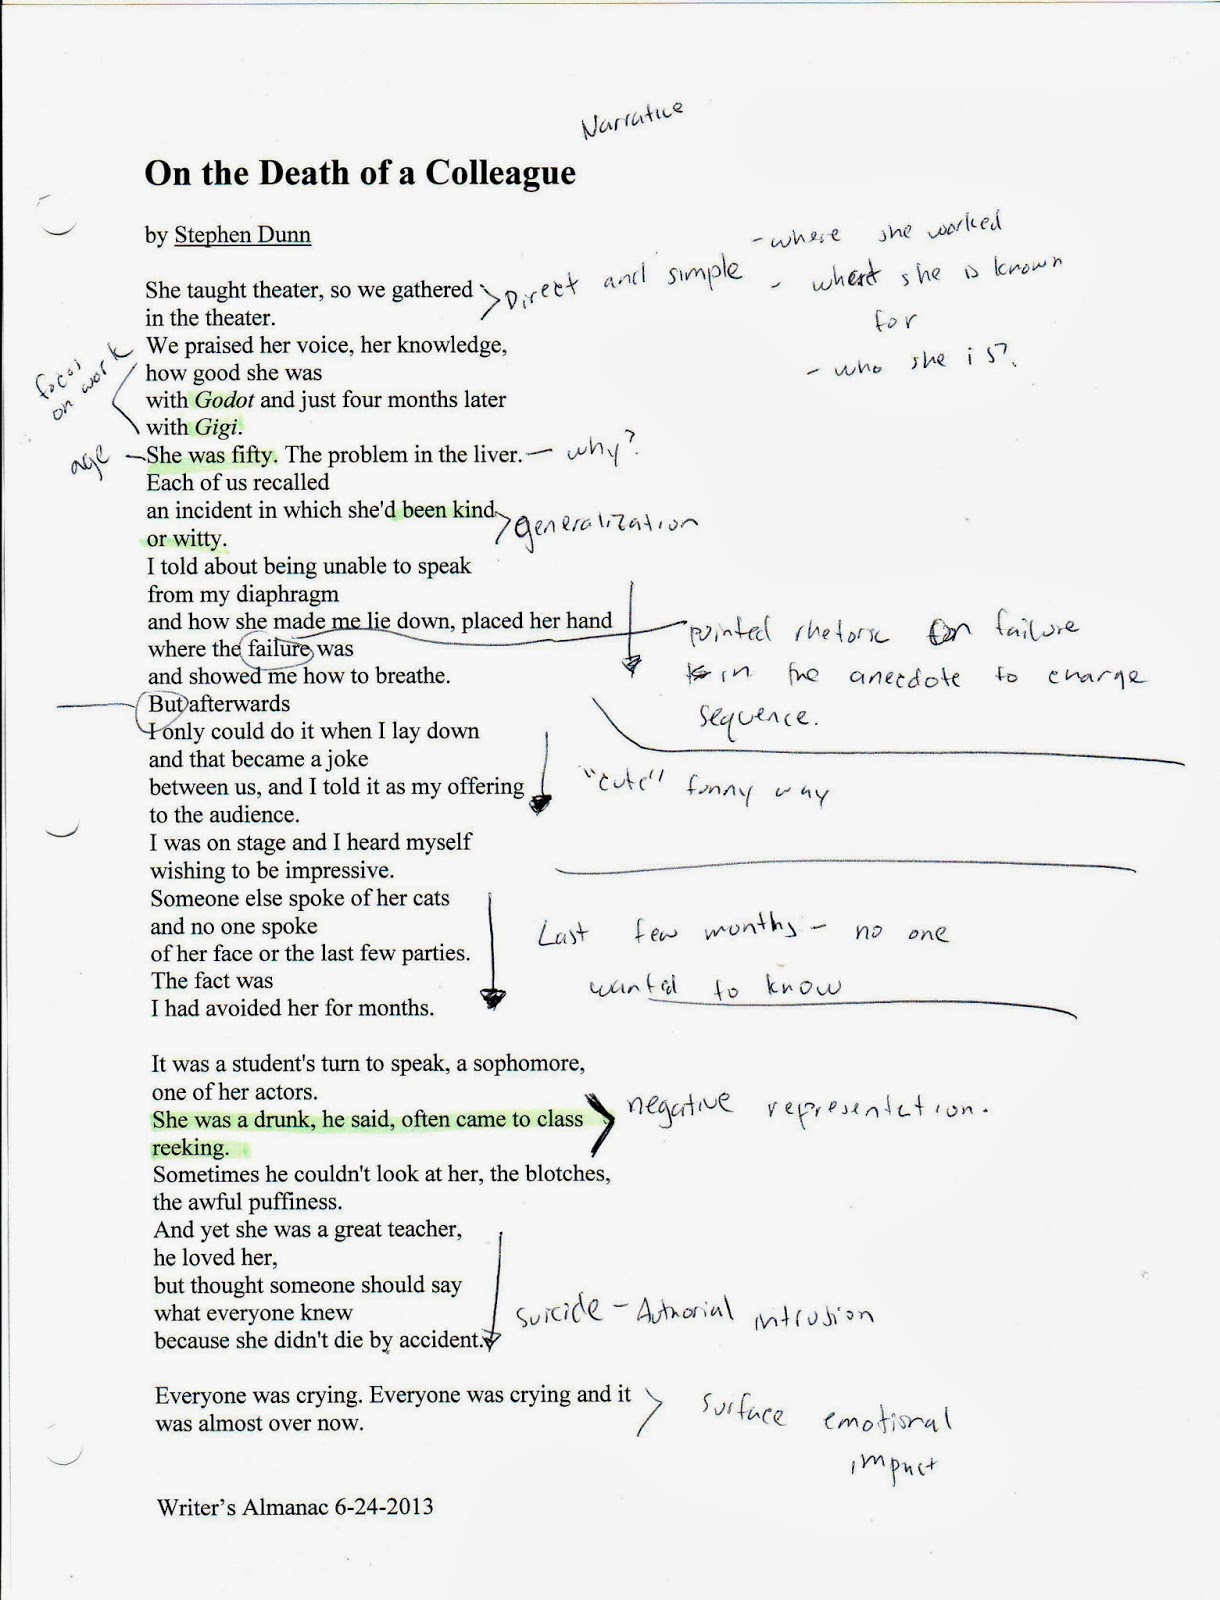 Narrative
On the Death of a Colleague
by Stephen Dunn
- where she worked
Direct and simple - what she is known
for
- who she is?
She taught theater, so we gathered
in the theater.
focus
on work
We praised her voice, her knowledge,
how good she was
with Godot and just four months later
with Gigi.
age
She was fifty. The problem in the liver. — why?
Each of us recalled
an incident in which she'd been kind
or witty.
generalization
I told about being unable to speak
from my diaphragm
and how she made me lie down, placed her hand
where the failure was
and showed me how to breathe.
pointed rhetoric on failure
in the anecdote to change
sequence.
But afterwards
I only could do it when I lay down
and that became a joke
between us, and I told it as my offering
to the audience.
"cute" funny way
I was on stage and I heard myself
wishing to be impressive.
Someone else spoke of her cats
and no one spoke
of her face or the last few parties.
The fact was
I had avoided her for months.
Last few months - no one
wanted to know
It was a student's turn to speak, a sophomore,
one of her actors.
She was a drunk, he said, often came to class
reeking.
negative representation.
Sometimes he couldn't look at her, the blotches,
the awful puffiness.
And yet she was a great teacher,
he loved her,
but thought someone should say
what everyone knew
because she didn't die by accident.
Suicide - Authorial intrusion
Everyone was crying. Everyone was crying and it
was almost over now.
surface emotional
impact
Writer's Almanac 6-24-2013